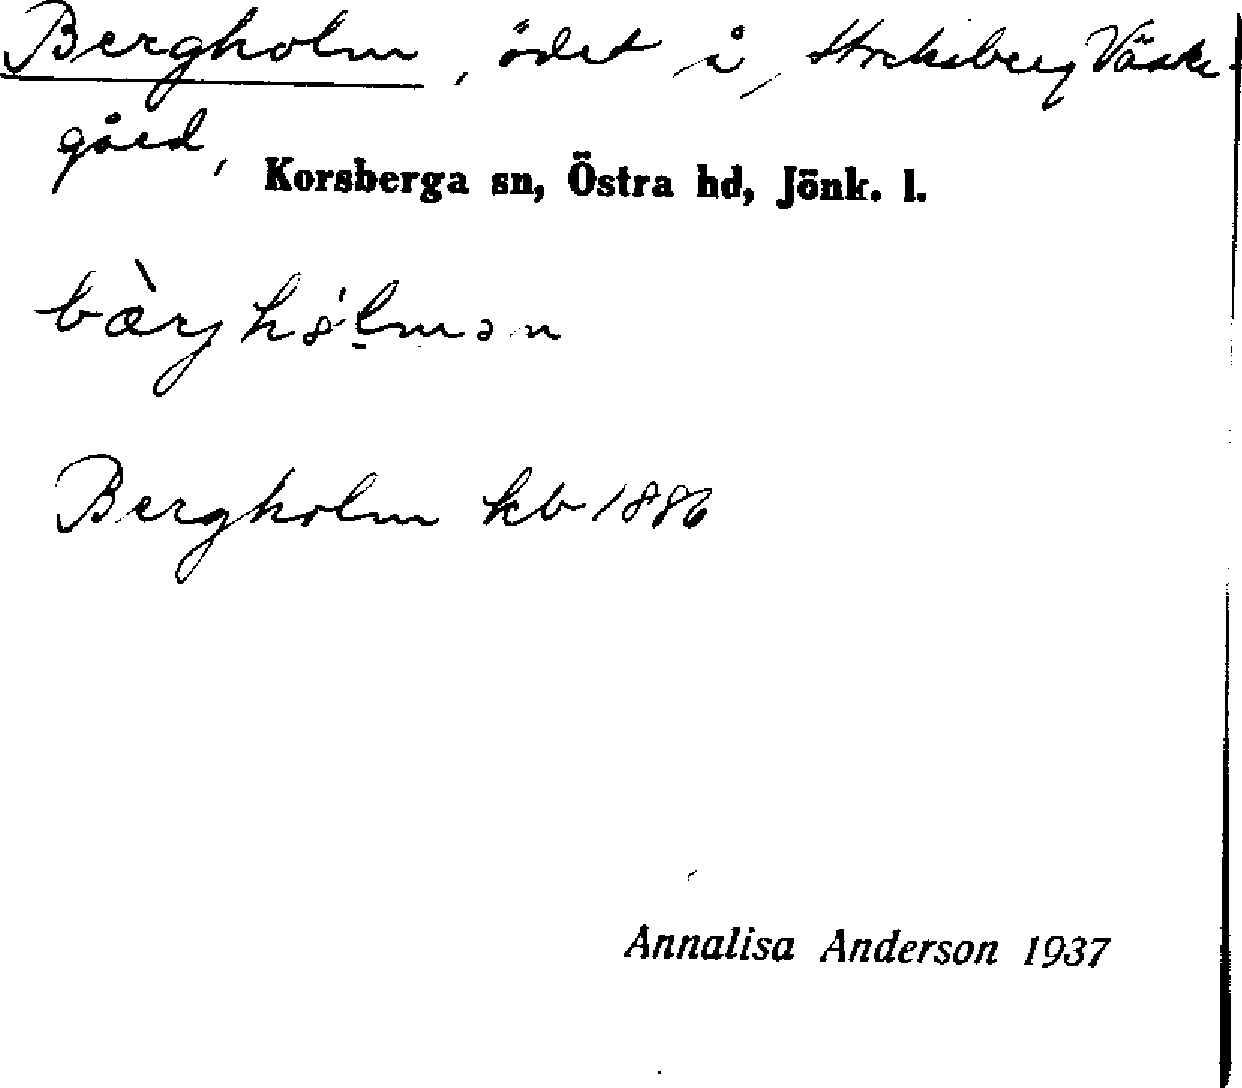 Bergholm, ödet å, Stocksberg Väste-
gård, Korsberga sn, Östra hd, Jönk. l.
bàrjhólmən
Bergholm kb 1886
Annalisa Anderson 1937